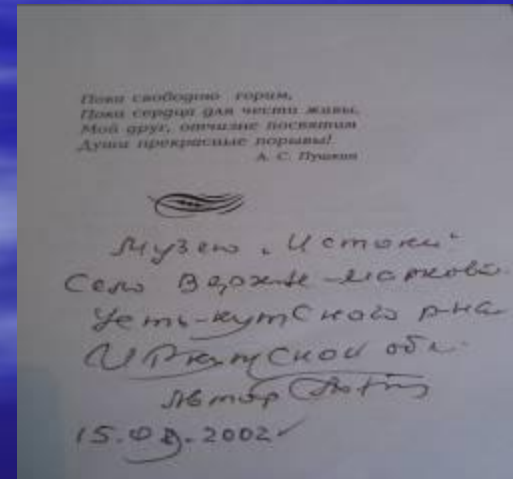 Пока свободою горим,
Пока сердца для чести живы,
Мой друг, отчизне посвятим
Души прекрасные порывы!
А. С. Пушкин
Музею „Истоки"
Село Верхне-Марково
Усть-Кутского р-на
Иркутской обл.
Автор
2002